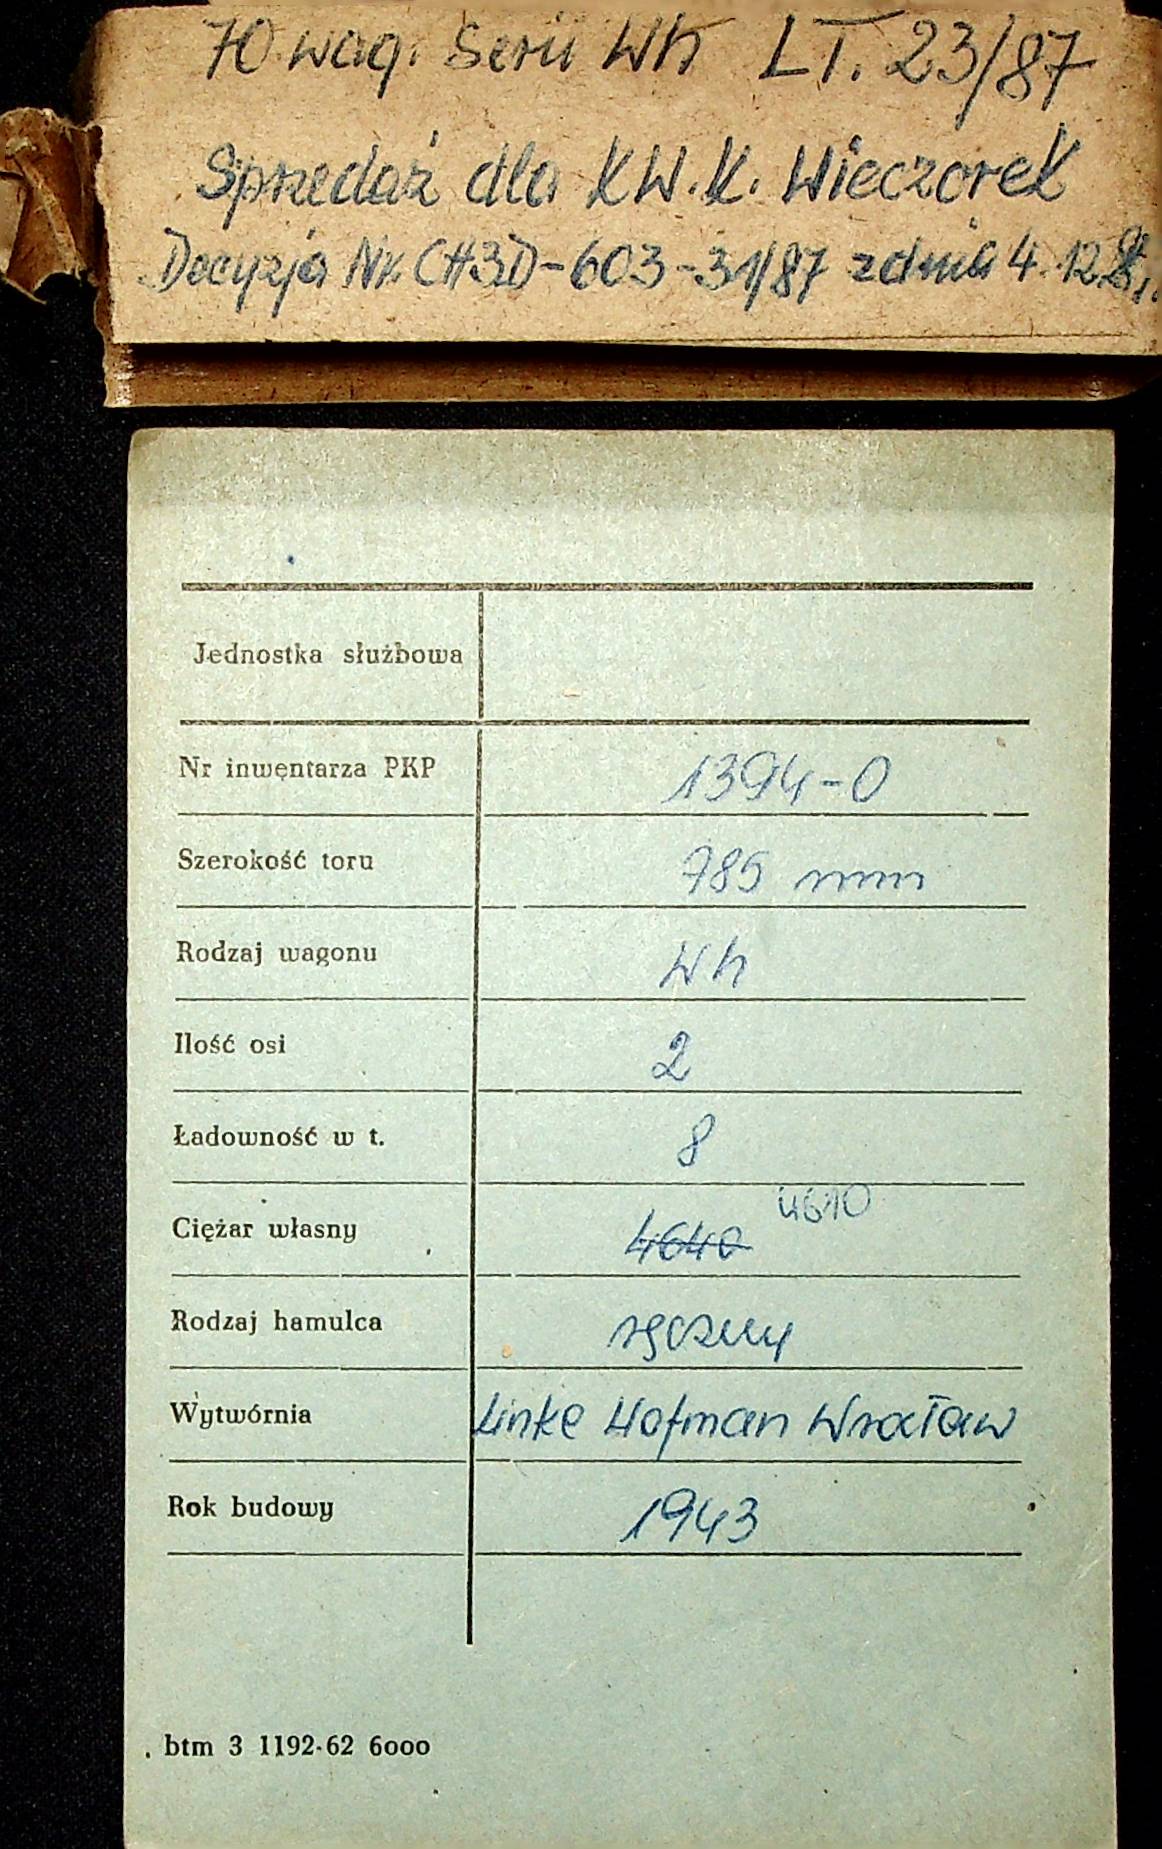 70 wag. Serii Wh LT. 23/87
Sprzedaż dla KW.K. Wieczorek
Decyzja Nr. CH3D-603-31/87 z dnia 4.12.
Jednostka służbowa
Nr inwentarza PKP 1394-0
Szerokość toru 785 mm
Rodzaj wagonu Wh
Ilość osi 2
Ładowność w t. 8
4610
Ciężar własny 4640
Rodzaj hamulca ręczny
Wytwórnia Linke Hofman Wrocław
Rok budowy 1943
btm 3 1192-62 6000